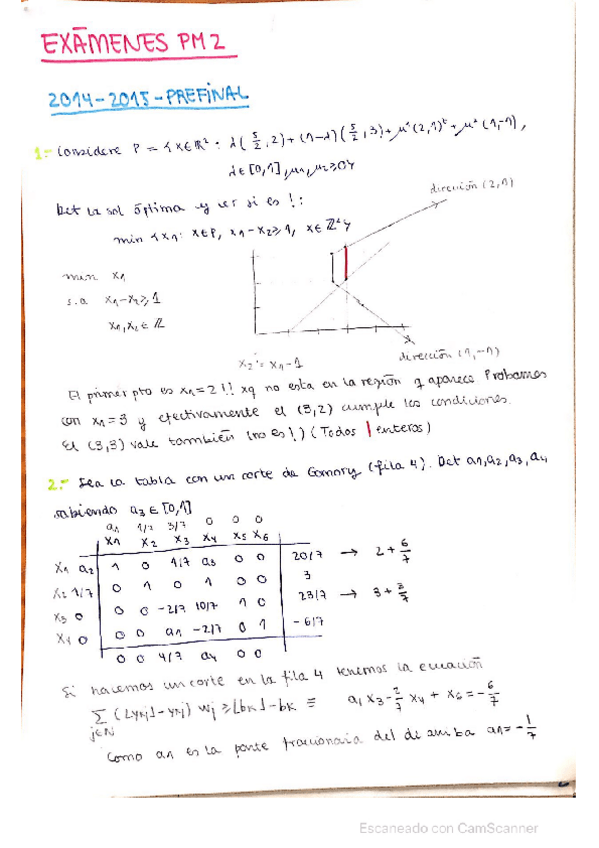 EXÁMENES PM2
2014-2015-PREFINAL
1.- Considere P = {x∈ℝ² : λ(5/2, 2) + (1-λ)(5/2, 3) + μ¹(2,1)ᵗ + μ²(1,-1),
λ∈[0,1], μ₁, μ₂ ≥ 0}
Det la sol óptima y ver si es !:
min {x₁: x∈P, x₁-x₂≥1, x∈ℤ²}
dirección (2,1)
min x₁
s.a x₁-x₂≥1
x₁,x₂∈ℤ
x₂ = x₁-1
dirección (1,-1)
El primer pto es x₁=2 !! xq no esta en la región q aparece Probamos
con x₁=3 y efectivamente el (3,2) cumple las condiciones.
El (3,3) vale también (no es !) (Todos | enteros)
2.- Sea la tabla con un corte de Gomory (fila 4). Det a1, a2, a3, a4
sabiendo a3 ∈ [0,1]
a1 1/2 3/7 0 0 0
x1 x2 x3 x4 x5 x6
x1 a2 1 0 1/7 a3 0 0 20/7 → 2 + 6/7
x2 1/7 0 1 0 1 0 0 3
x3 0 0 0 -2/7 10/7 1 0 23/7 → 3 + 2/7
x4 0 0 0 a1 -2/7 0 1 -6/7
0 0 4/7 a4 0 0
Si hacemos un corte en la fila 4 tenemos la ecuación
∑ j∈N (⌊ykj⌋ - ykj) wj ≥ ⌊bk⌋ - bk ≡ a1 x3 - 2/7 x4 + x6 = -6/7
Como a1 es la parte fraccionaria del de arriba a1 = -1/7
Escaneado con CamScanner